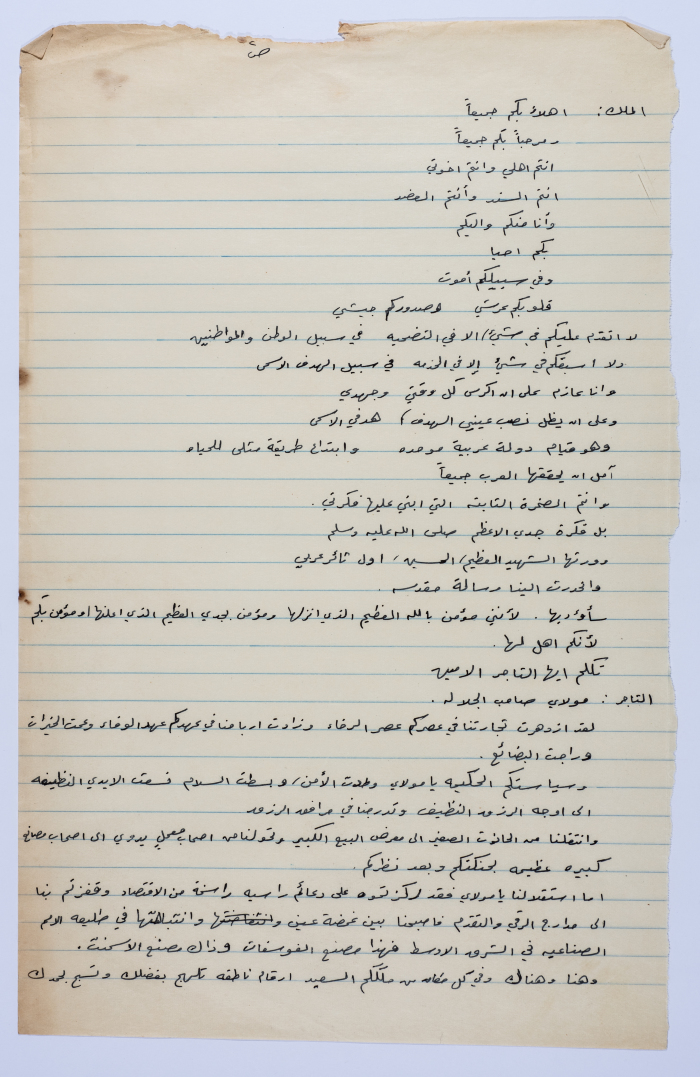 ص
الملك: اهلاً بكم جميعاً
ومرحباً بكم جميعاً
انتم اهلي وانتم اخوتي
انتم السند وأنتم العضد
وأنا منكم واليكم
بكم احيا
وفي سبيلكم أموت
قلوبكم عرشي وصدوركم جيشي
لا اتقدم عليكم في شيء الا في التضحيه في سبيل الوطن والمواطنين
ولا اسبقكم في شيء إلا في الخدمه في سبيل الهدف الاسمى
وانا عازم على ان اكرس كل وقتي وجهدي
وعلى ان يظل نصب عيني الهدف، هدفي الاسمى
وهو قيام دولة عربية موحده وابتداع طريقة مثلى للحياه
آمل ان يحققها العرب جميعاً
وانتم الصخرة الثابته التي ابني عليها فكرتي.
بل فكرة جدي الاعظم صلى الله عليه وسلم
وورثها الشهيد العظيم، الحسين، اول ثائر عربي
وانحدرت الينا رسالة مقدسه.
سأؤديها. لأنني مؤمن بالله العظيم الذي انزلها ومؤمن بجدي العظيم الذي اعلنها، ومؤمن بكم
لأنكم اهل لها.
تكلم ايها التاجر الامين
التاجر: مولاي صاحب الجلاله.
لقد ازدهرت تجارتنا في عصركم عصر الرخاء وزادت ارباحنا في عهدكم عهد الوفاء وعمت الخيرات
وراجت البضائع.
وسياستكم الحكيمه يا مولاي وطدت الأمن، وبسطت السلام فسعت الايدي النظيفه
الى اوجه الرزق النظيف وتدرجنا في مرافق الرزق
وانتقلنا من الحانوت الصغير الى معرض البيع الكبير وتحولنا من اصحاب معمل يدوي الى اصحاب مصانع
كبيره عظيمه بحنكتكم وبعد نظركم.
اما استقلالنا يا مولاي فقد ركزتموه على دعائم راسيه راسخة من الاقتصاد وقفزتم بنا
الى مدارج الرقي والتقدم فاصبحنا بين غمضة عين وانتباهتها في طليعه الامم
الصناعيه في الشرق الاوسط فهذا مصنع الفوسفات وذاك مصنع الاسمنت.
وهنا وهناك وفي كل مكان من ملككم السعيد ارقام ناطقه تلهج بفضلك وتسبح بحمدك